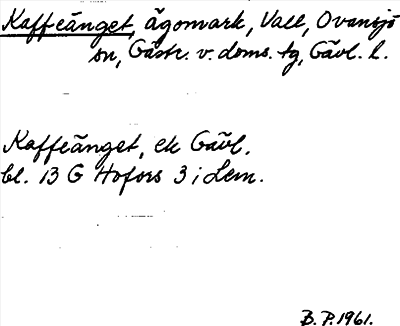 Kaffeänget, ägomark, Vall, Ovansjö
sn, Gästr. v. doms. tg, Gävl. l.
Kaffeänget, ek Gävl.
bl. 13 G Hofors 3 i Lem.
B. P. 1961.